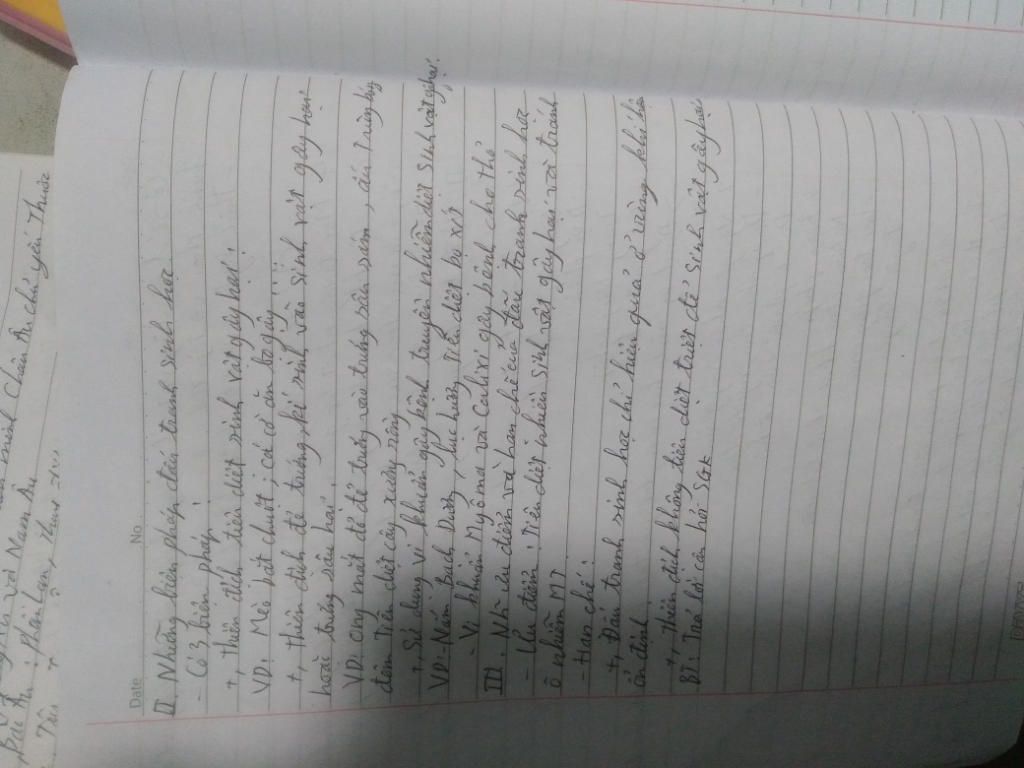 Date No.
II. Những biện pháp đấu tranh sinh học
- Có 3 biện pháp:
+, Thiên địch tiêu diệt sinh vật gây hại:
VD: Mèo bắt chuột; cá cờ ăn bọ gậy
+, Thiên địch đẻ trứng kí sinh vào sinh vật gây hại
hoặc trứng sâu hại:
VD: ong mắt đỏ đẻ trứng vào trứng sâu xám, ấu trùng
đêm tiêu diệt cây xương rồng
+, Sử dụng vi khuẩn gây bệnh truyền nhiễm diệt sinh vật gây hại:
VD: - Nấm bạch dương, lục cương tiêu diệt bọ xít
- Vi khuẩn Myôma và Calixi gây bệnh cho thỏ
III. Những ưu điểm và hạn chế của đấu tranh sinh học
- Ưu điểm: Tiêu diệt nhiều sinh vật gây hại và tránh
ô nhiễm MT
- Hạn chế:
+, Đấu tranh sinh học chỉ hiệu quả ở vùng khí hậu
ổn định
+, Thiên địch không tiêu diệt triệt để sinh vật gây hại
BT: Trả lời câu hỏi SGK
và Nam Âu
Châu Âu chủ yếu thuộc
: phần lan,